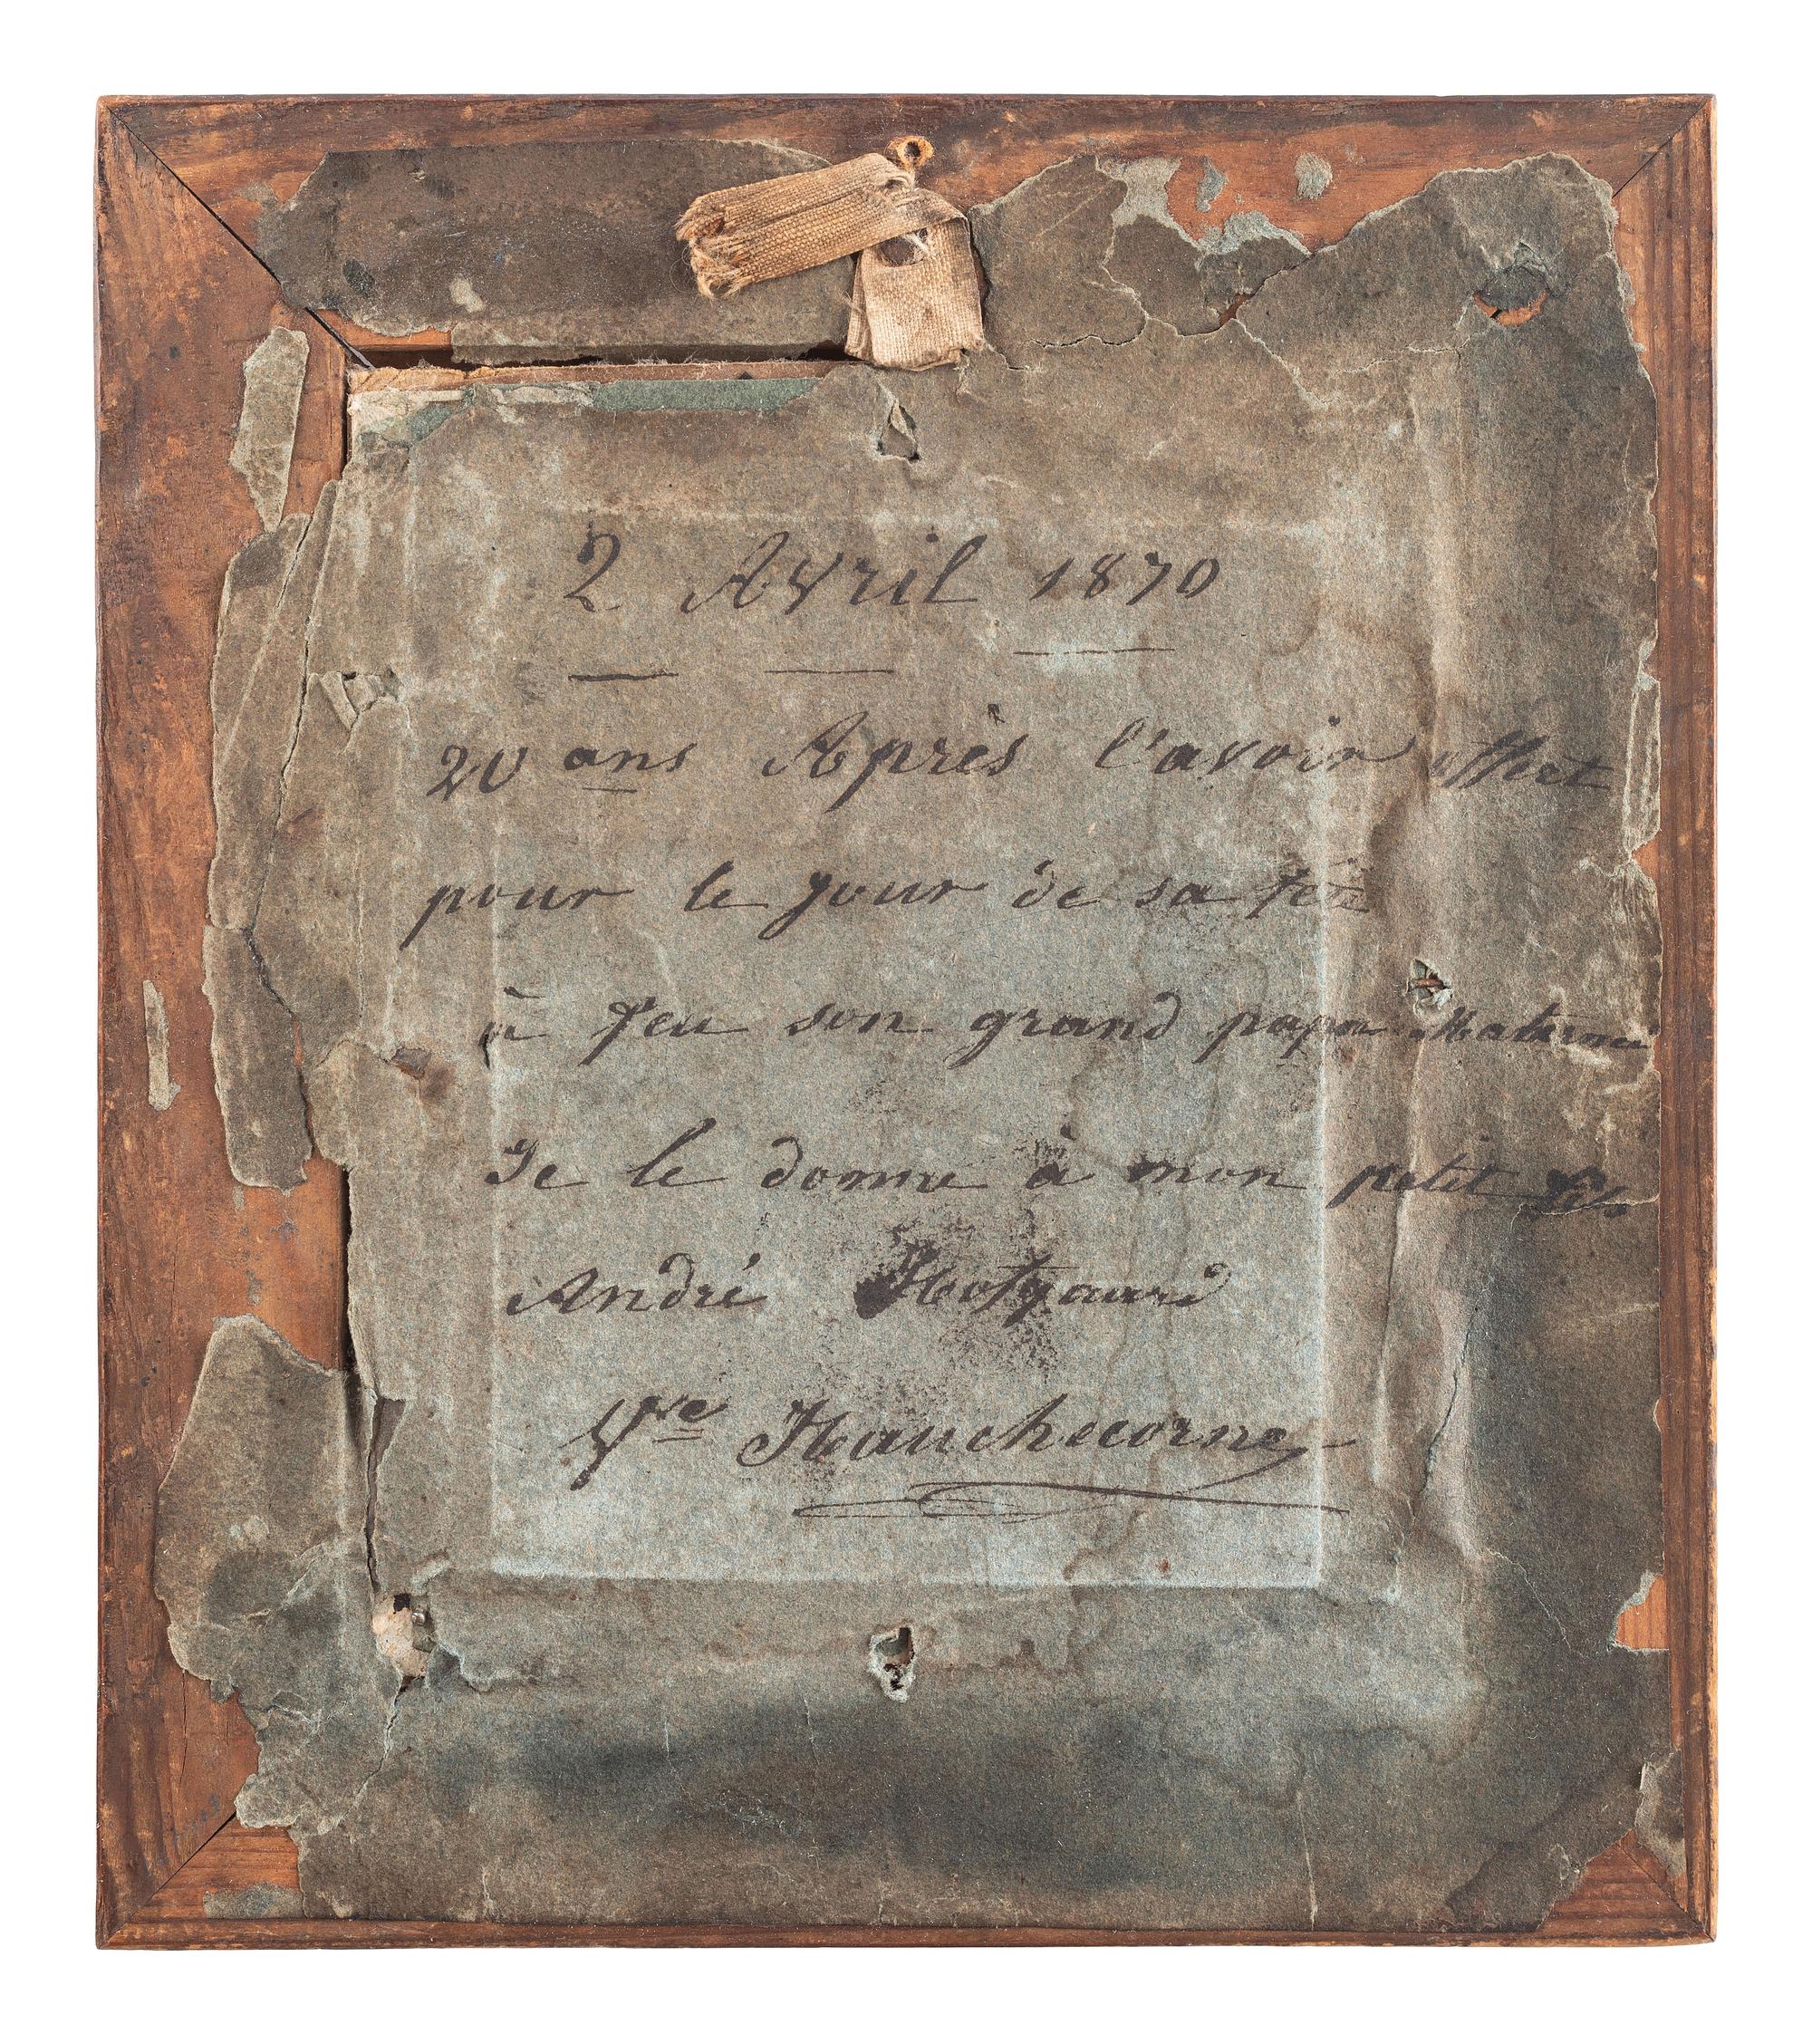 2 Avril 1870
20 ans Après l'avoir offert
pour le jour de sa fête
à feu son grand papa Maternel
Je le donne à mon petit fils
André Hofgaard
Vve Hauchecorne